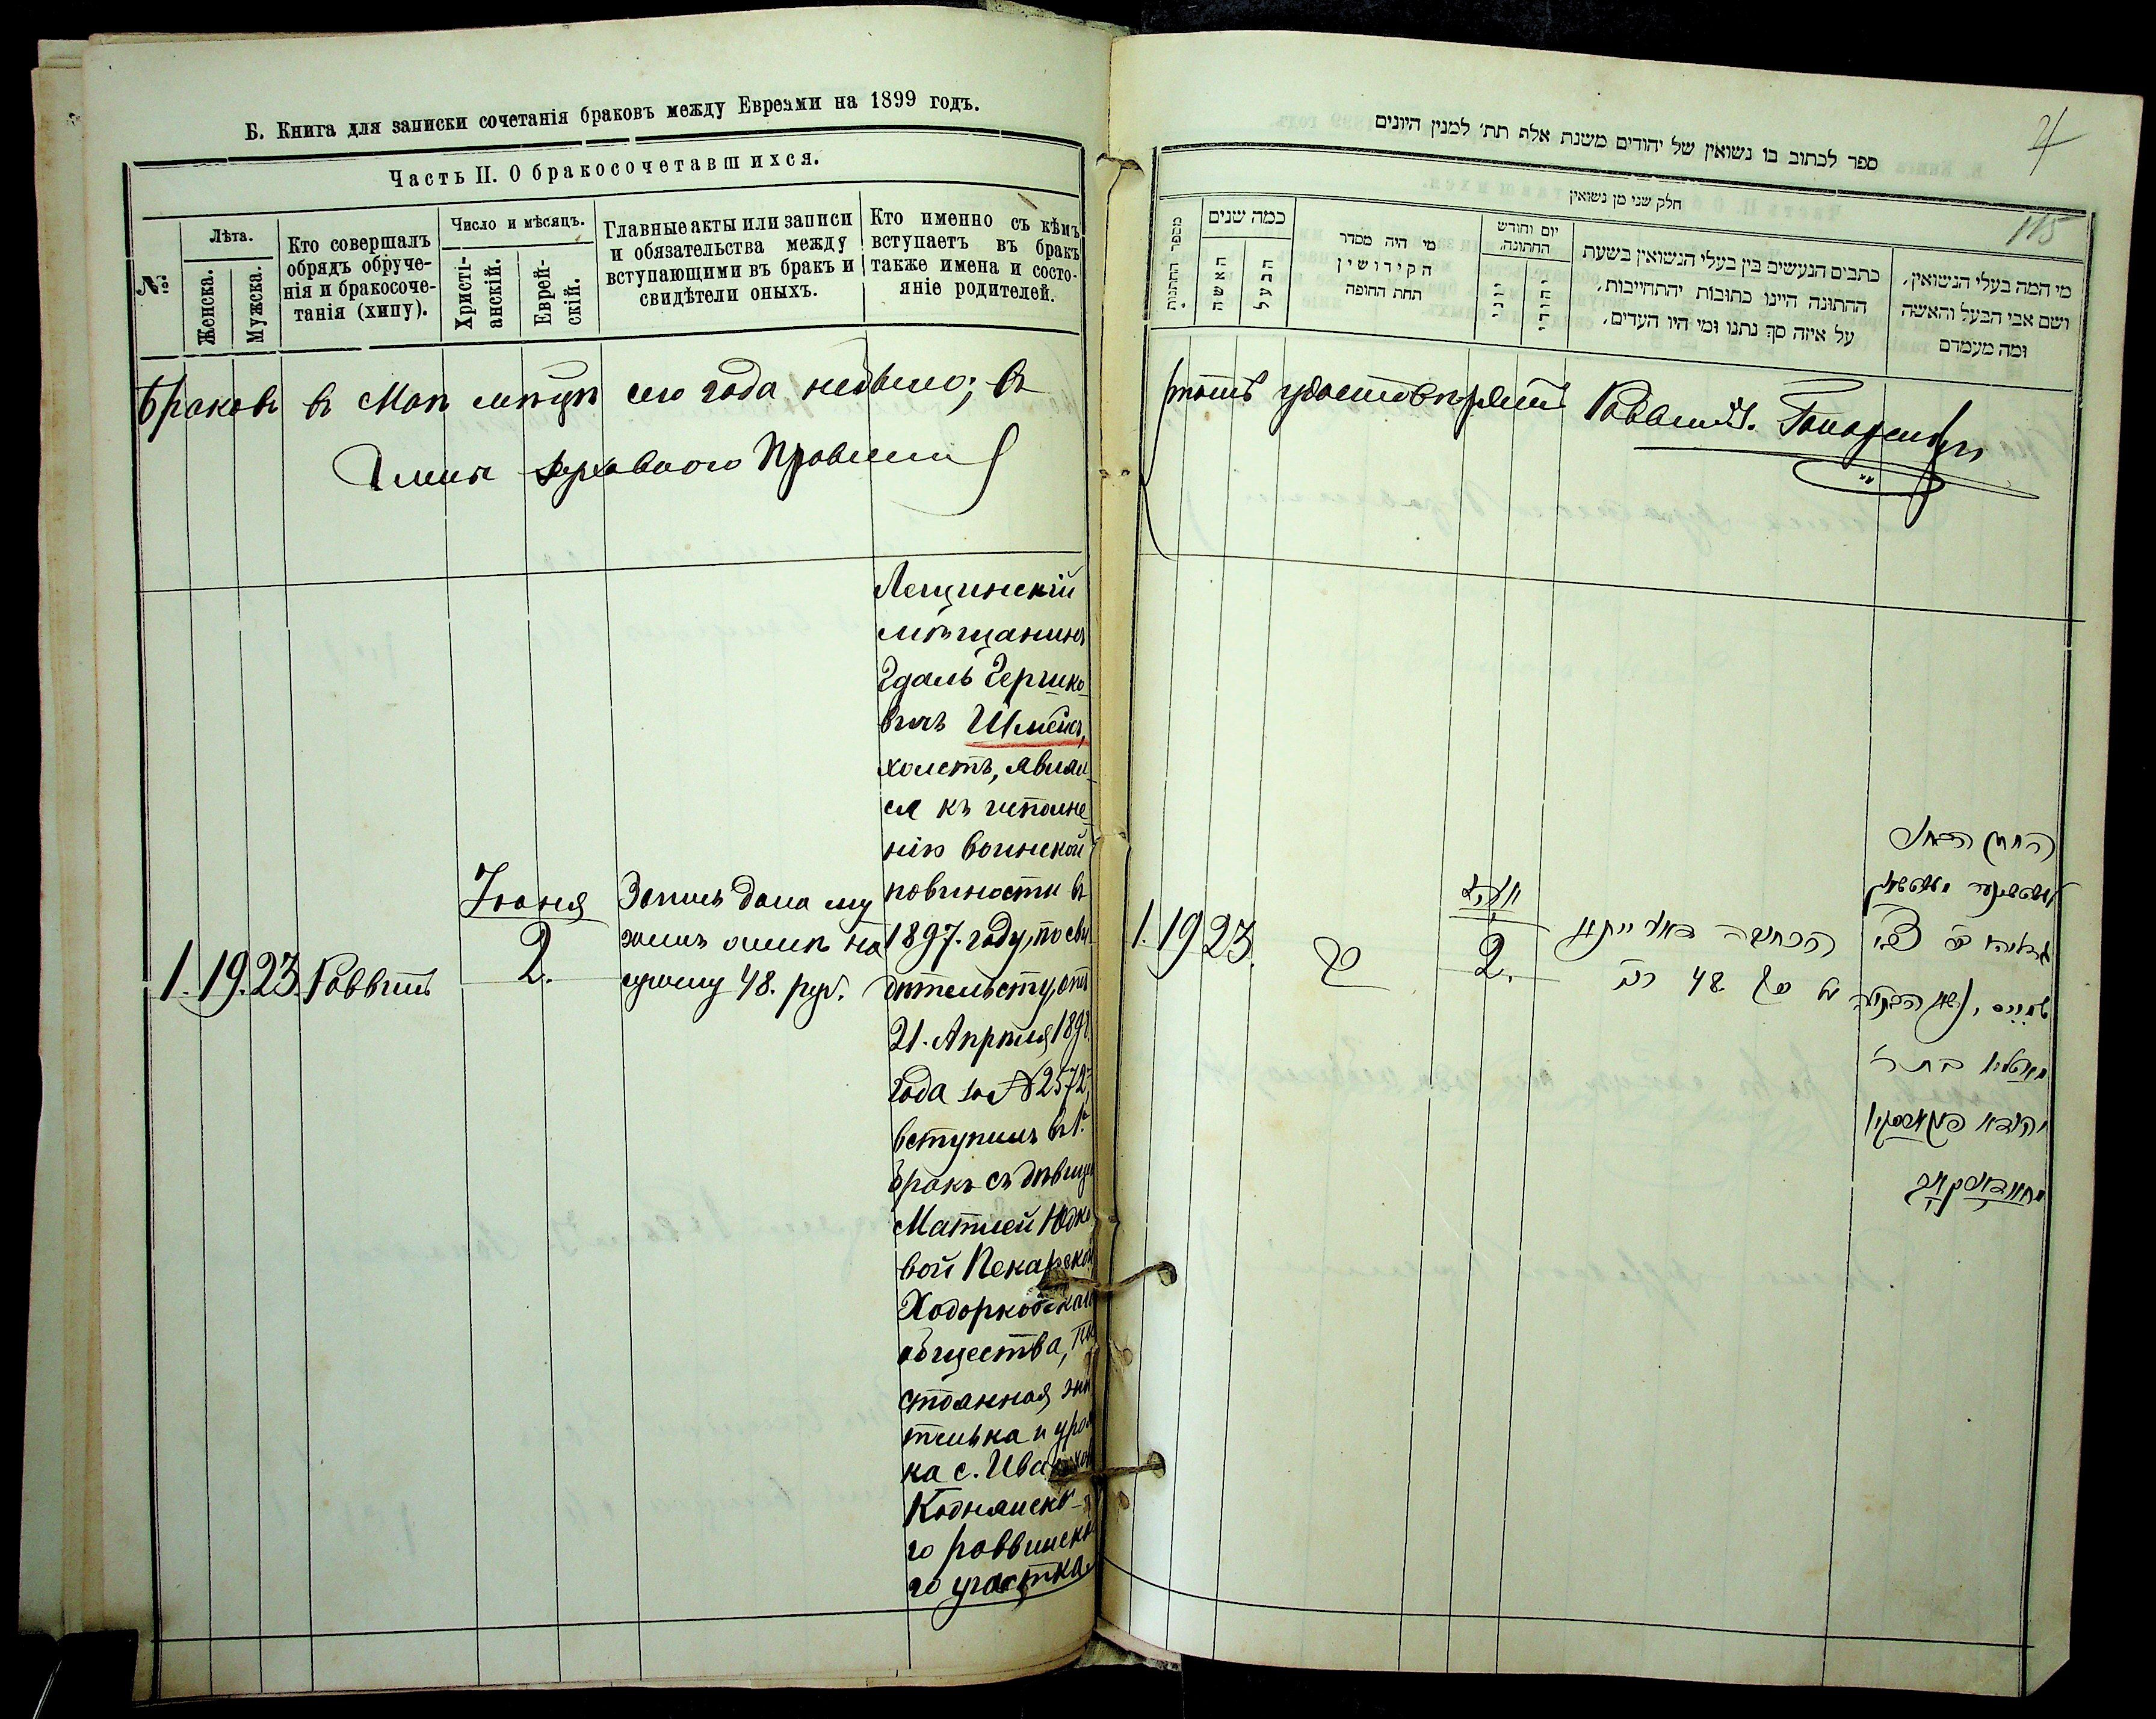 Б. Книга для записки сочетанія браковъ между Евреями на 1899 годъ.
Часть II. О бракосочетавшихся.
№
Лѣта.
Женска.
Мужска.
Кто совершалъ
обрядъ обруче-
нія и бракосоче-
танія (хипу).
Число и мѣсяцъ.
Христі-
анскій.
Еврей-
скій.
Главные акты или записи
и обязательства между
вступающими въ бракъ и
свидѣтели оныхъ.
Кто именно съ кѣмъ
вступаетъ въ бракъ
также имена и состо-
яніе родителей.
Браковъ в Маѣ мѣсяцѣ сего года небыло; въ
1. 19. 23. Раввинъ
Іюня
2.
Запись дана му
жемъ женѣ на
сумму 48. руб.
Лещинскій
мѣщанинъ
Гдаль Гершко-
вичъ Шмейсъ,
холостъ, явил
ся къ исполне
нію воинской
повиности въ
1897. году, по сви
дѣтельству, отъ
21. Апрѣля 189
года за № 2572,
вступилъ въ 1й
бракъ съ дѣвицей
Матлей Юдко
вой Пекарской
Ходорковскаго
общества, по
стоянная жи
телька и уро
ка с. Ива
Коднянско-
го раввинска
го участка
ספר לכתוב בו נשואין של יהודים משנת אלף תת׳ למנין היונים
4
115
חלק שני מן נשואין
מספר החתונות
כמה שנים
האשה
הבעל
מי היה מסדר
הקידושין
תחת החופה
יום וחודש
החתונה.
יוני
יהודי
כתבים הנעשים בין בעלי הנשואין בשעת
ההתונה היינו כתובות יהתחייבות,
על איזה סך נתנו ומי היו העדים,
מי המה בעלי הנשואין,
ושם אבי הבעל והאשה
ומה מעמדם
томъ удостовѣряетъ Раввинъ.
1. 19 23.
2.
על סך 48 רב
החתן הבחור
גדליה בר צבי